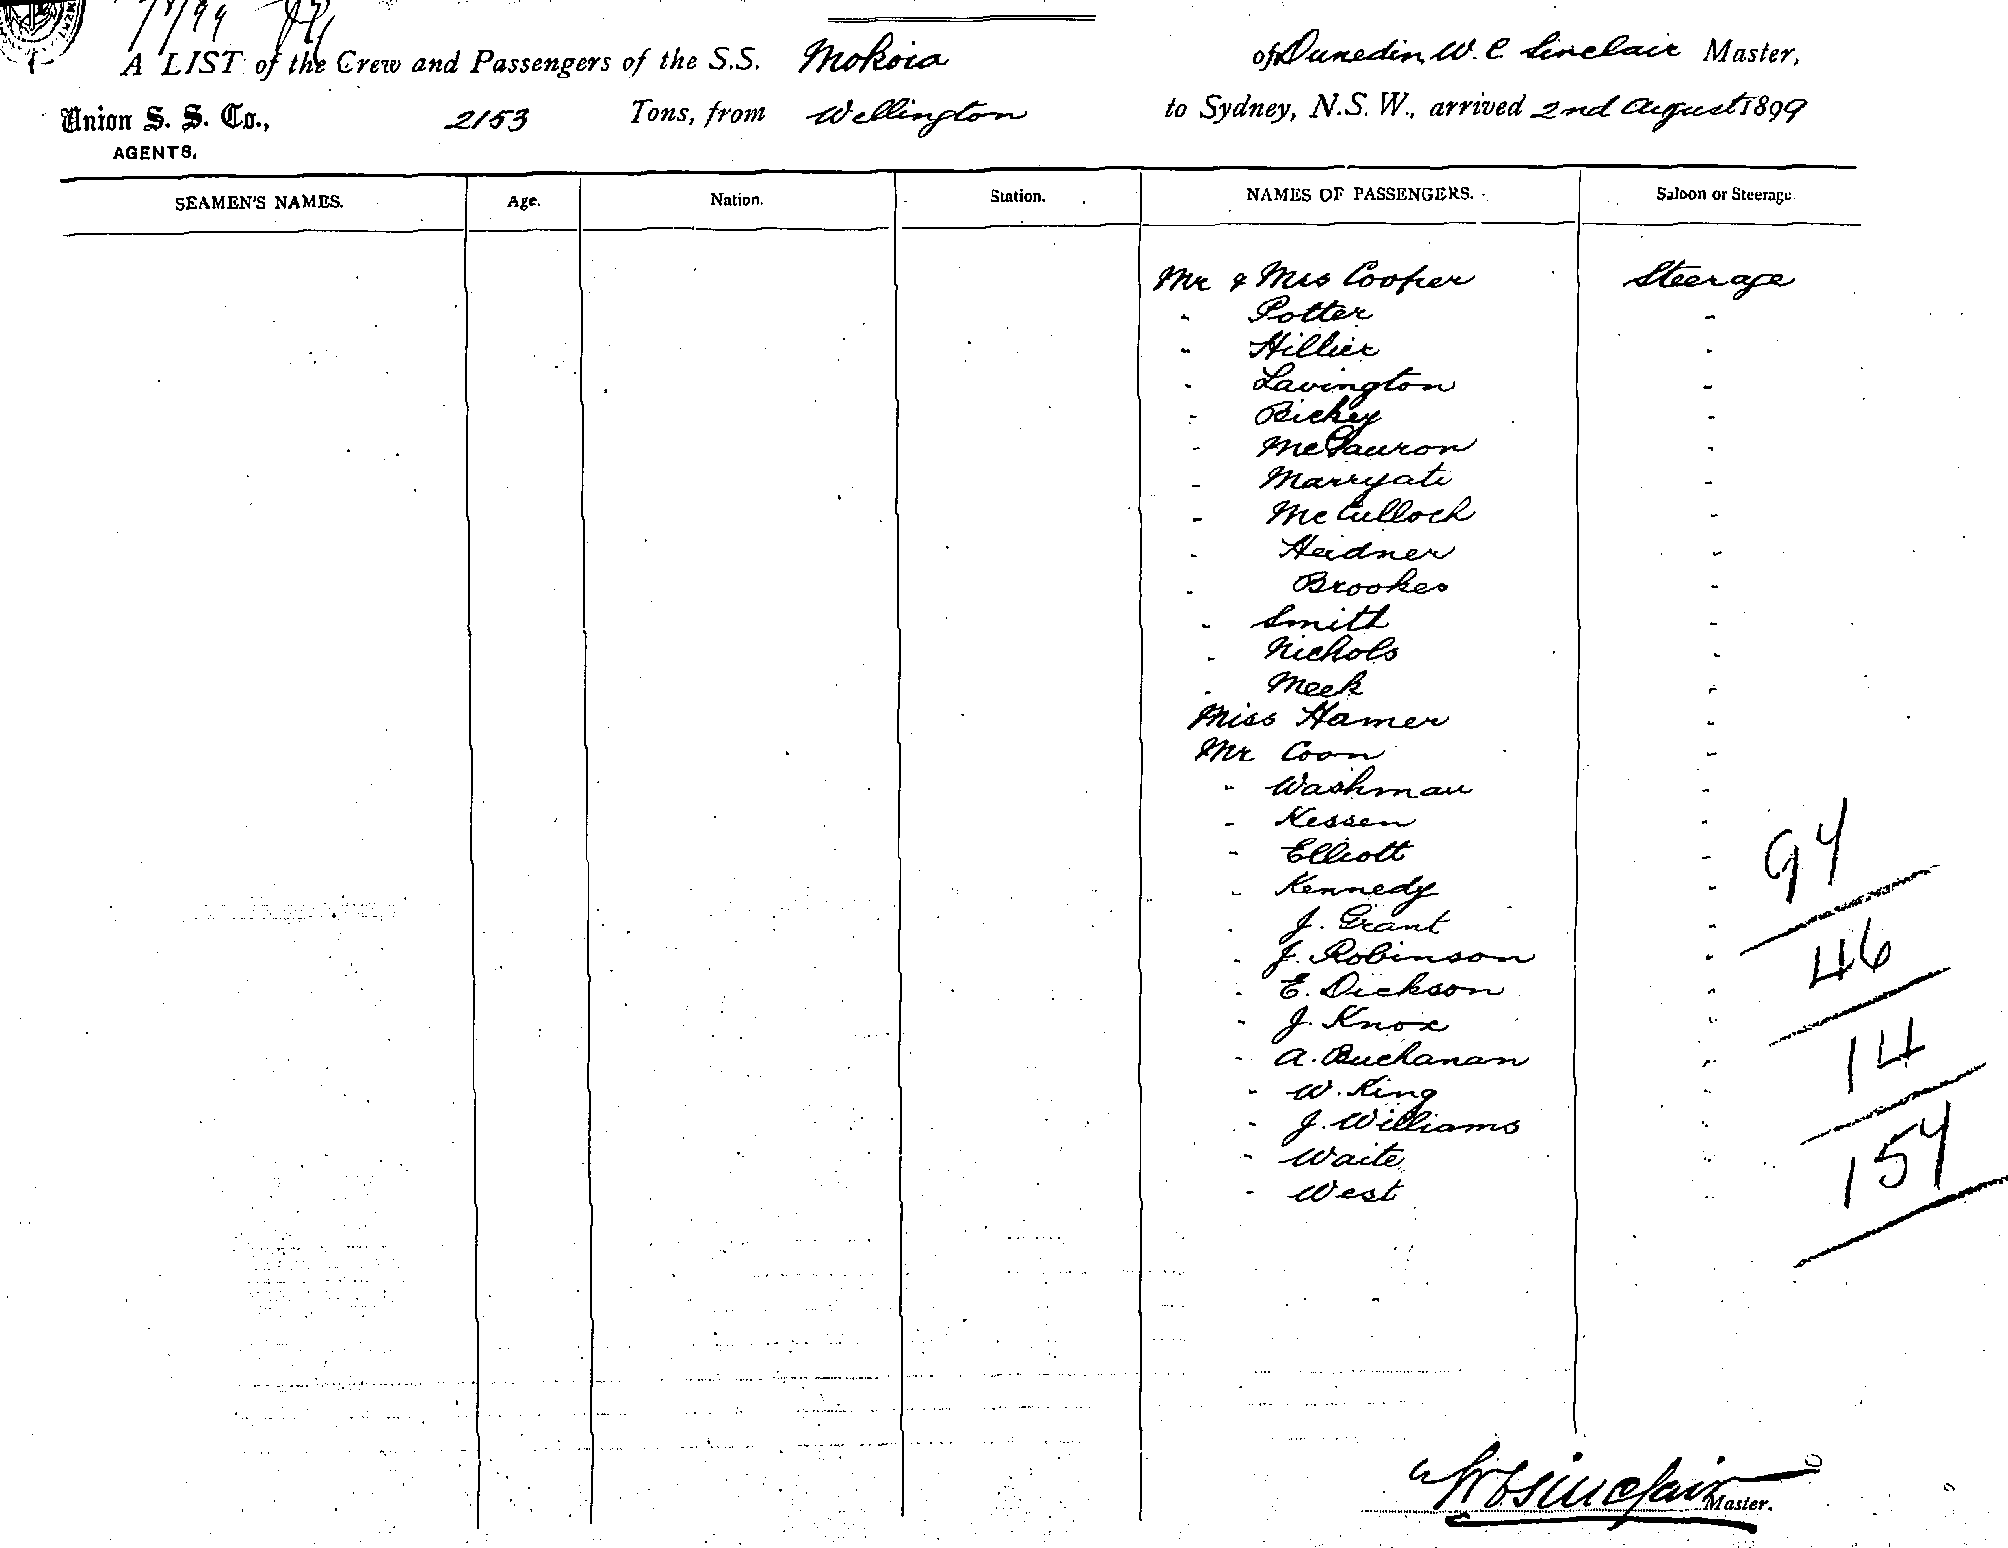 7/8/99
A LIST of the Crew and Passengers of the S.S. Mokoia of Dunedin, W. C. Sinclair Master,
Union S. S. Co., 2153 Tons, from Wellington to Sydney, N.S.W., arrived 2nd August 1899
AGENTS.
SEAMEN'S NAMES. Age. Nation. Station. NAMES OF PASSENGERS. Saloon or Steerage
Mr & Mrs Cooper Steerage
" Potter "
" Hillier "
" Lavington "
" Richey "
" "
" Marryate "
" McCulloch "
" Heidner "
" Brookes "
" Smith "
" Nichols "
" Meek "
Miss Hamer "
Mr Coon "
" Washman "
" Kessen "
" Elliott "
" Kennedy "
" J. Grant "
" J. Robinson "
" E. Dickson "
" J. Knox "
" A. Buchanan "
" W. King "
" J. Williams "
" Waite "
" West "
94
46
14
154
W C Sinclair Master.